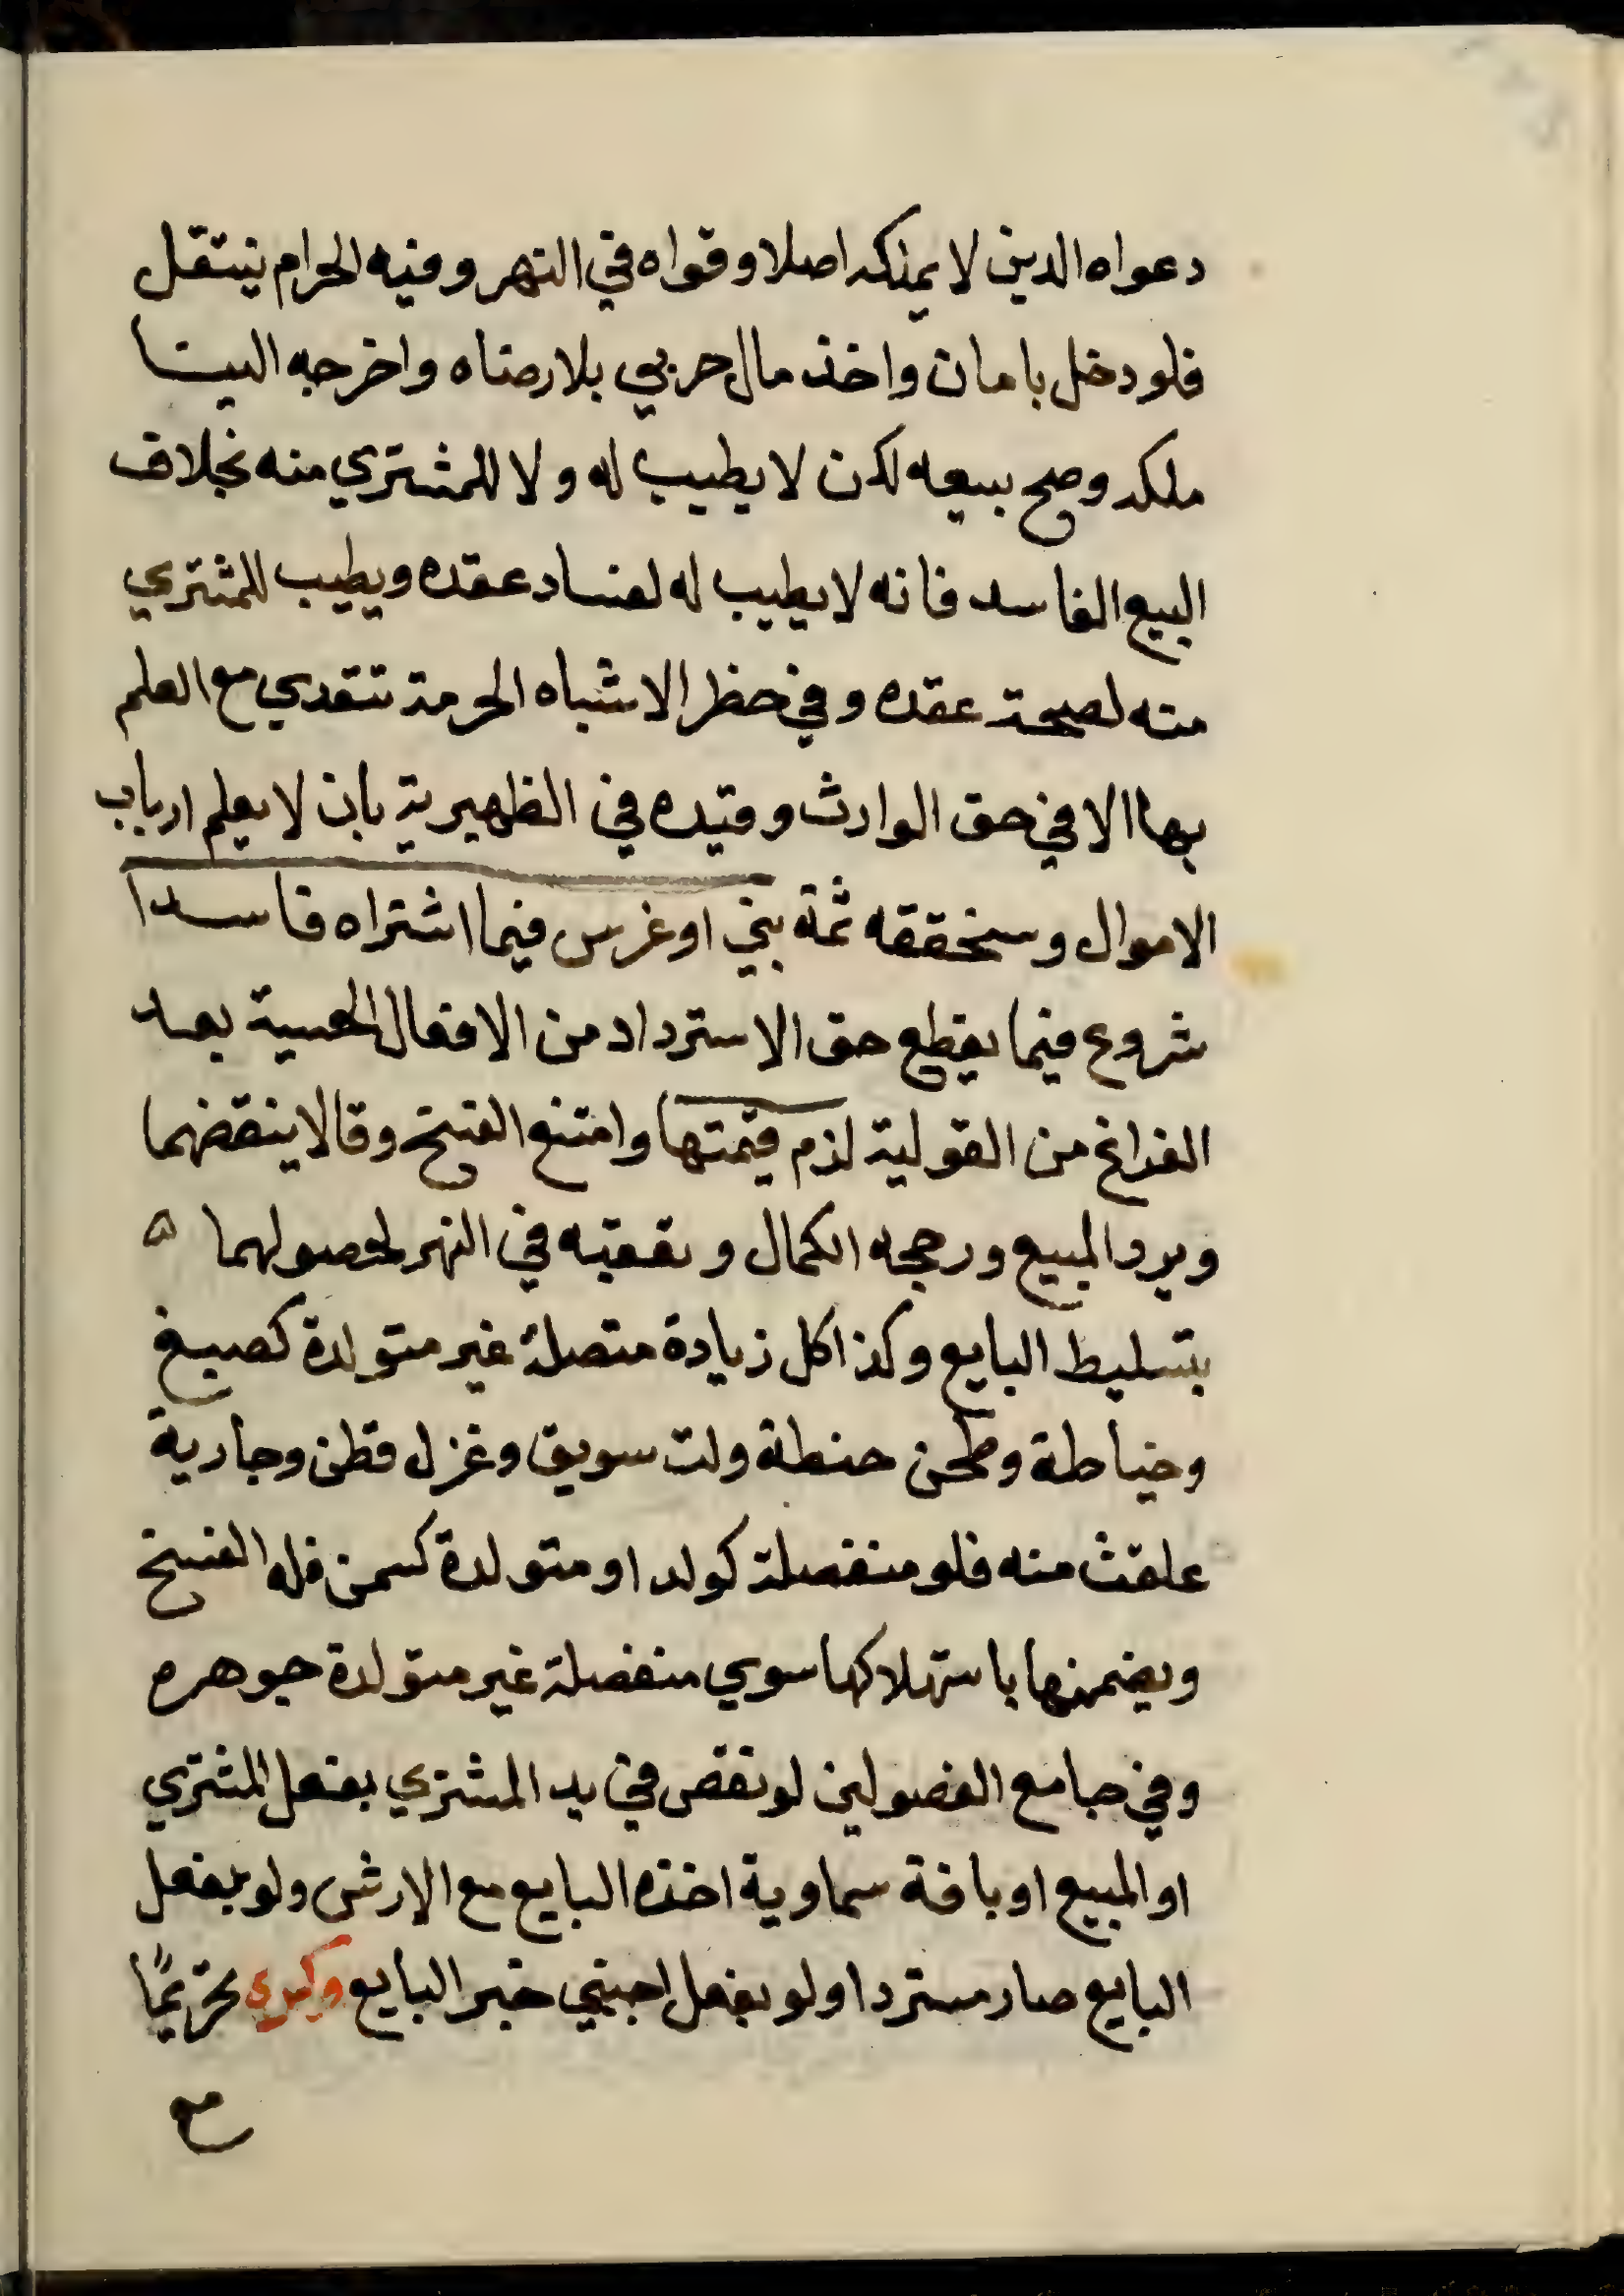 دعواه الدين لا يملكه اصلا وقواه في النهر وفيه الحرام ينتقل
فلو دخل بامان واخذ مال حربي بلا رضاه واخرجه الينا
ملكه وصح بيعه لكن لا يطيب له ولا للمشتري منه بخلاف
البيع الفاسد فانه لا يطيب له لفساد عقده ويطيب للمشتري
منه لصحة عقده وفي حظر الاشباه الحرمة تتعدي مع العلم
بها الا في حق الوارث وقيده في الظهيرية بان لا يعلم ارباب
الاموال وسنحققه ثمة بني او غرس فيما اشتراه فاسدا
شروع فيما يقطع حق الاسترداد من الافعال الحسية بعد
الفراغ من القولية لزم قيمتها وامتنع الفسخ وقالا ينقضهما
ويرد المبيع ورجحه الكمال وتعقبه في النهر لحصولهما
بتسليط البايع وكذا كل زيادة متصلة غير متولدة كصبغ
وخياطة وطحن حنطة ولت سويق وغزل قطن وجارية
علقت منه فلو منفصلة كولد او متولدة كسمن فله الفسخ
ويضمنها باستهلاكها سوي منفصلة غير متولدة جوهره
وفي جامع الفصولين لو نقص في يد المشتري بفعل المشتري
او المبيع او بافة سماوية اخذه البايع مع الارش ولو بفعل
البايع صار مستردا ولو بفعل اجنبي خير البايع وكره تحريمًا
مع